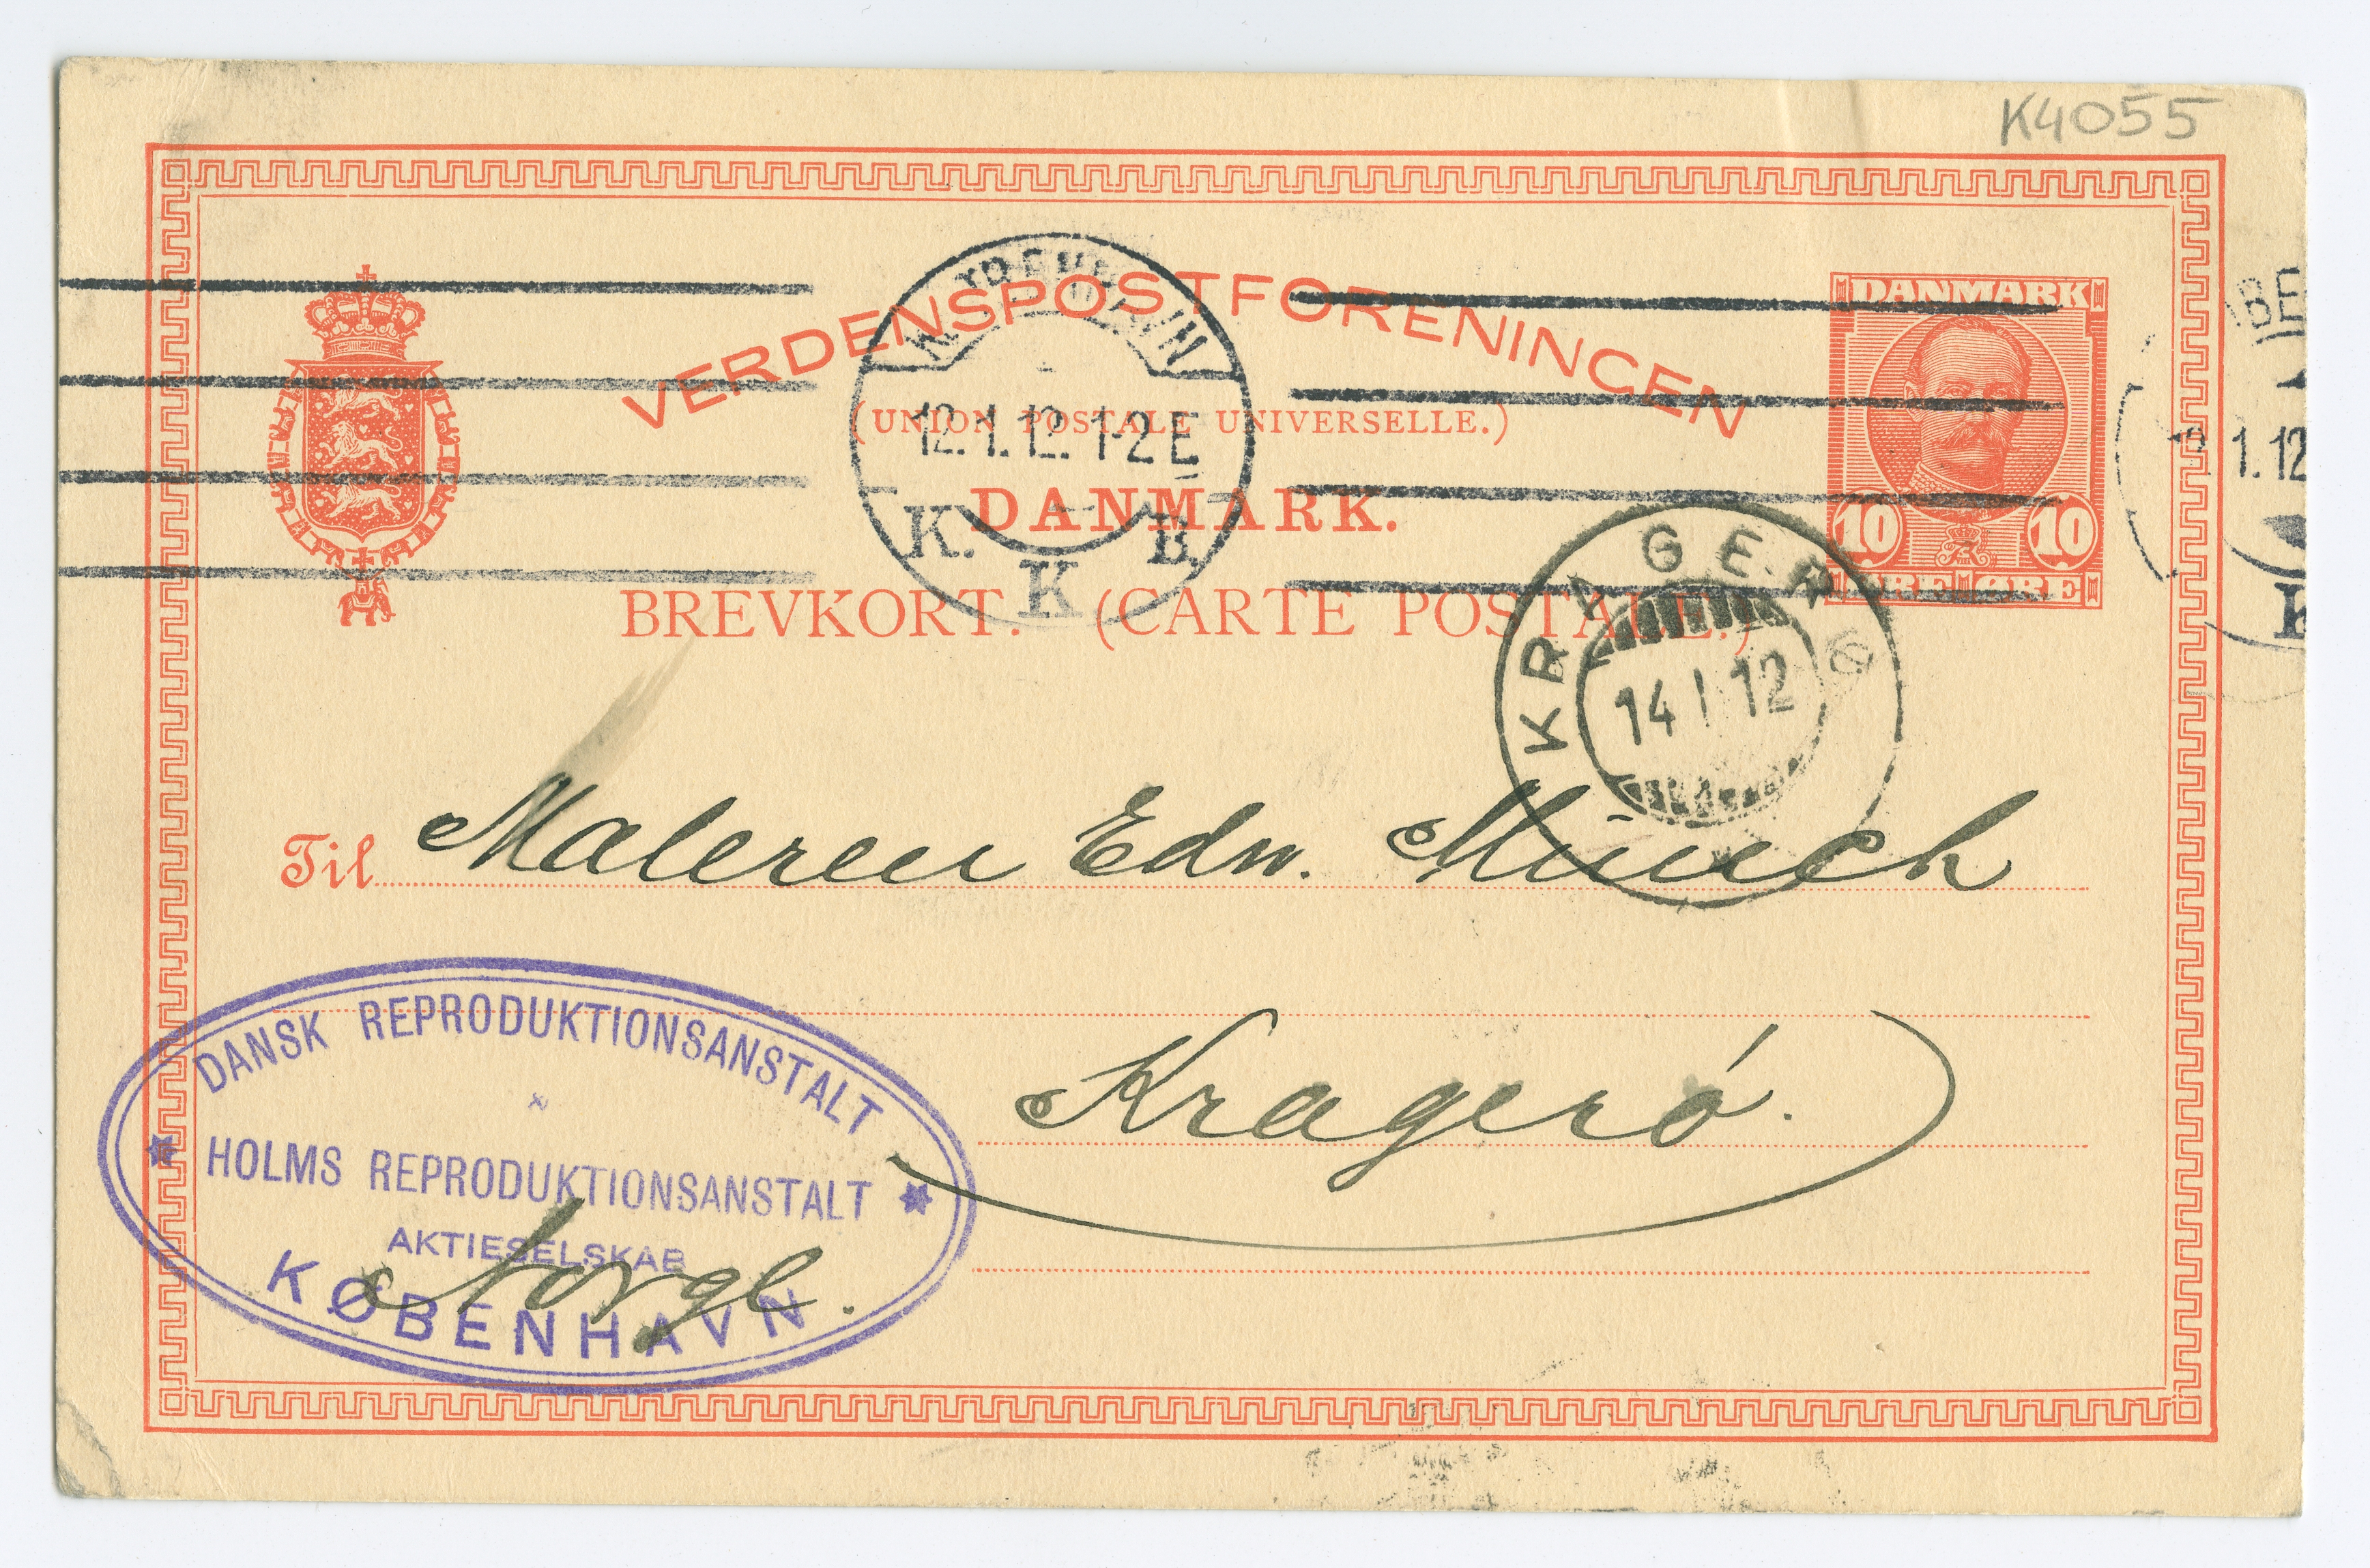 K4055
VERDENSPOSTFORENINGEN
(UNION POSTALE UNIVERSELLE.)
DANMARK.
BREVKORT. (CARTE POSTALE.)
DANMARK
10 10
ØRE ØRE
KJØBENHAVN
12.1.12. 1-2 E
K. K B.
BE
1.12
K
KRAGERØ
14 I 12
Til Maleren Edv. Münch
Kragerö.
Norge.
DANSK REPRODUKTIONSANSTALT
HOLMS REPRODUKTIONSANSTALT
AKTIESELSKAB
KØBENHAVN